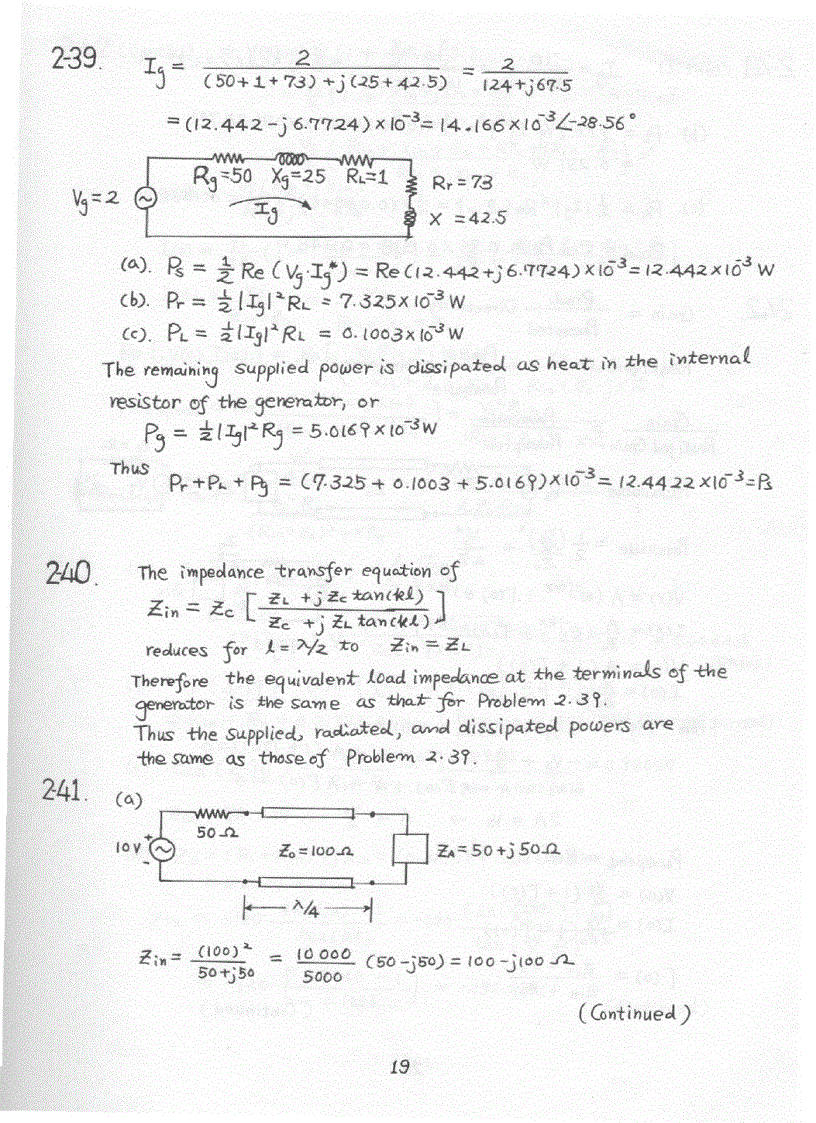 2-39. Ig = 2 / ((50+1+73)+j(25+42.5)) = 2 / (124+j67.5)
= (12.442-j6.7724)×10⁻³ = 14.166×10⁻³∠-28.56°
Rg=50 Xg=25 RL=1 Rr=73
Vg=2 Ig X=42.5
(a). Ps = 1/2 Re(Vg·Ig*) = Re(12.442+j6.7724)×10⁻³ = 12.442×10⁻³ W
(b). Pr = 1/2 |Ig|² RL = 7.325×10⁻³ W
(c). PL = 1/2 |Ig|² RL = 0.1003×10⁻³ W
The remaining supplied power is dissipated as heat in the internal
resistor of the generator, or
Pg = 1/2 |Ig|² Rg = 5.0169×10⁻³ W
Thus
Pr+PL+Pg = (7.325 + 0.1003 + 5.0169)×10⁻³ = 12.4422×10⁻³ = Ps
2-40. The impedance transfer equation of
Zin = Zc [ (ZL + j Zc tan(kl)) / (Zc + j ZL tan(kl)) ]
reduces for l = λ/2 to Zin = ZL
Therefore the equivalent load impedance at the terminals of the
generator is the same as that for Problem 2.39.
Thus the supplied, radiated, and dissipated powers are
the same as those of Problem 2.39.
2-41. (a)
50 Ω
10V + - Z₀=100Ω ZA=50+j50Ω
λ/4
Zin = (100)² / (50+j50) = 10 000 / 5000 (50-j50) = 100-j100 Ω
(Continued)
19